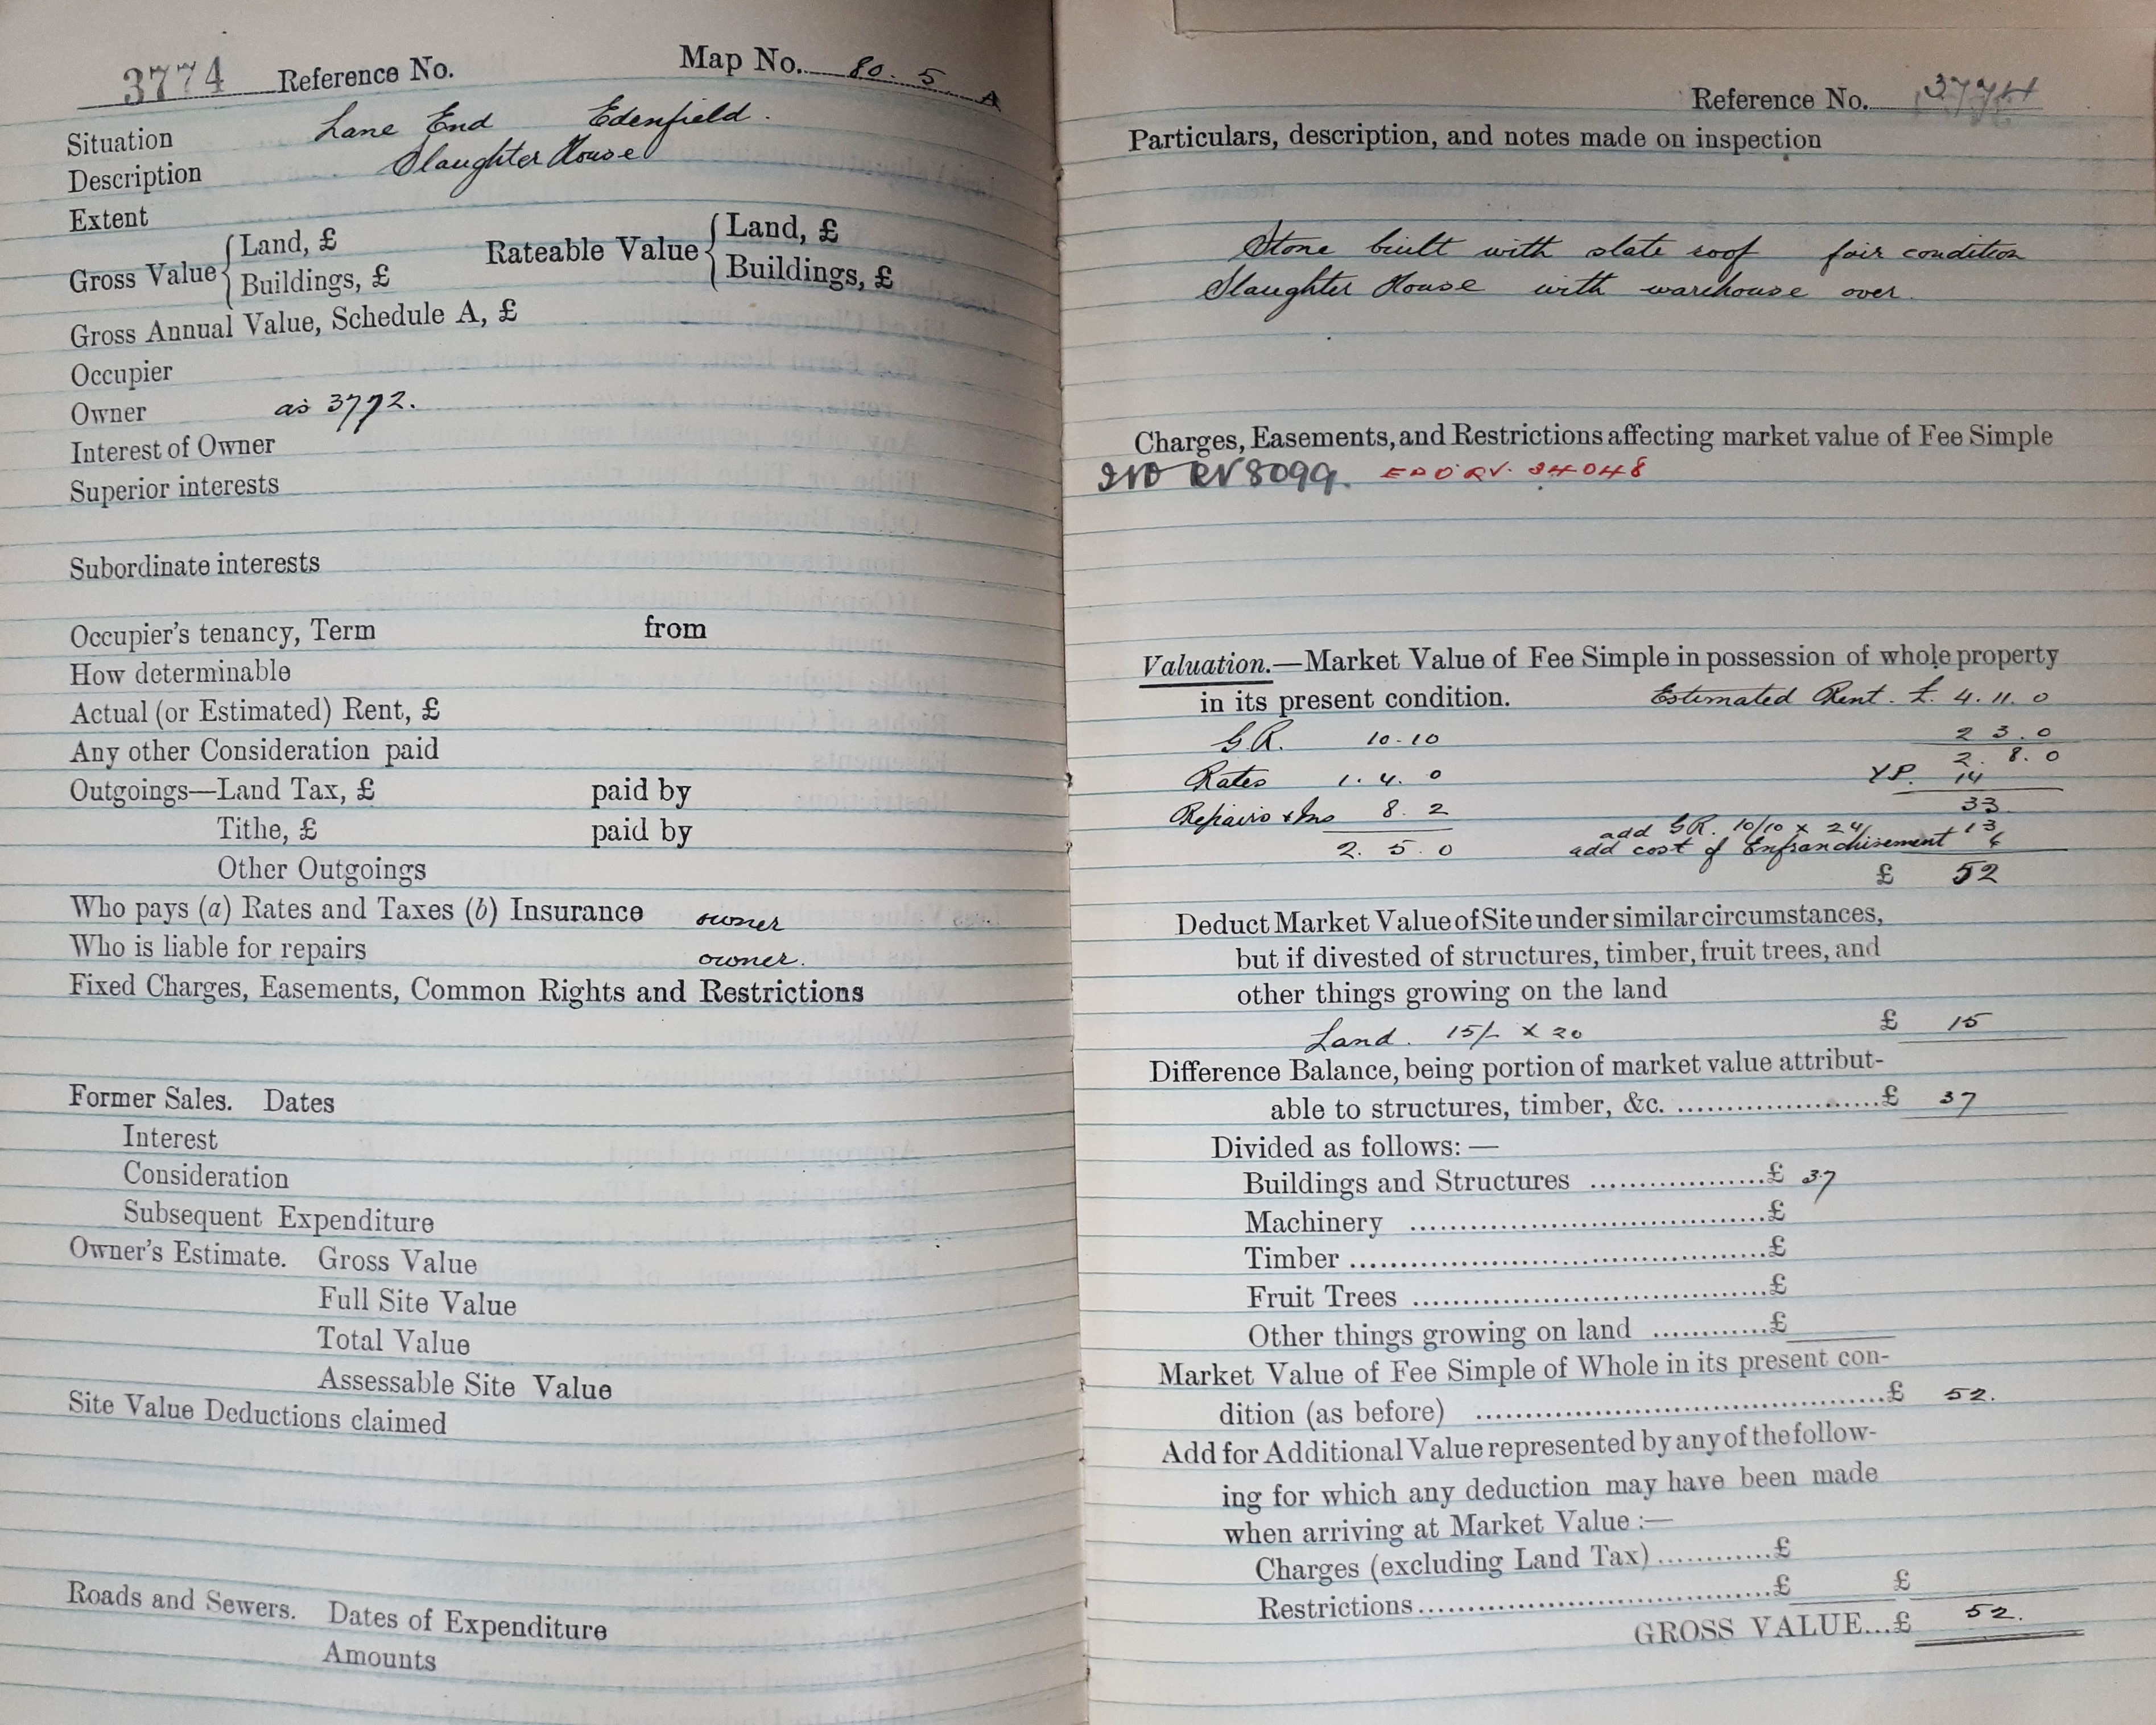 3774 Reference No. Map No. 80. 5 A
Situation Lane End Edenfield.
Description Slaughter House
Extent
Gross Value { Land, £ Rateable Value { Land, £
Buildings, £ Buildings, £
Gross Annual Value, Schedule A, £
Occupier
Owner as 3772.
Interest of Owner
Superior interests
Subordinate interests
Occupier's tenancy, Term from
How determinable
Actual (or Estimated) Rent, £
Any other Consideration paid
Outgoings—Land Tax, £ paid by
Tithe, £ paid by
Other Outgoings
Who pays (a) Rates and Taxes (b) Insurance owner
Who is liable for repairs owner.
Fixed Charges, Easements, Common Rights and Restrictions
Former Sales. Dates
Interest
Consideration
Subsequent Expenditure
Owner's Estimate. Gross Value
Full Site Value
Total Value
Assessable Site Value
Site Value Deductions claimed
Roads and Sewers. Dates of Expenditure
Amounts
Reference No. 3774
Particulars, description, and notes made on inspection
Stone built with slate roof fair condition
Slaughter House with warehouse over.
Charges, Easements, and Restrictions affecting market value of Fee Simple
RV 8099. RV. 34048
Valuation.—Market Value of Fee Simple in possession of whole property
in its present condition. Estimated Rent. £. 4. 11. 0
G.R. 10-10 2 3. 0
2. 8. 0
Rates 1. 4. 0 YP. 14
Repairs & Ins 8. 2 33
add G.R. 10/10 x 24 13
2. 5. 0 add cost of Enfranchisement 6
£ 52
Deduct Market Value of Site under similar circumstances,
but if divested of structures, timber, fruit trees, and
other things growing on the land
Land. 15/- x 20 £ 15
Difference Balance, being portion of market value attribut-
able to structures, timber, &c. ....................£ 37
Divided as follows: —
Buildings and Structures ..................£ 37
Machinery ....................................£
Timber ..........................................£
Fruit Trees ...................................£
Other things growing on land ............£
Market Value of Fee Simple of Whole in its present con-
dition (as before) ..........................................£ 52.
Add for Additional Value represented by any of the follow-
ing for which any deduction may have been made
when arriving at Market Value :—
Charges (excluding Land Tax)............£
Restrictions....................................£ £
GROSS VALUE...£ 52.